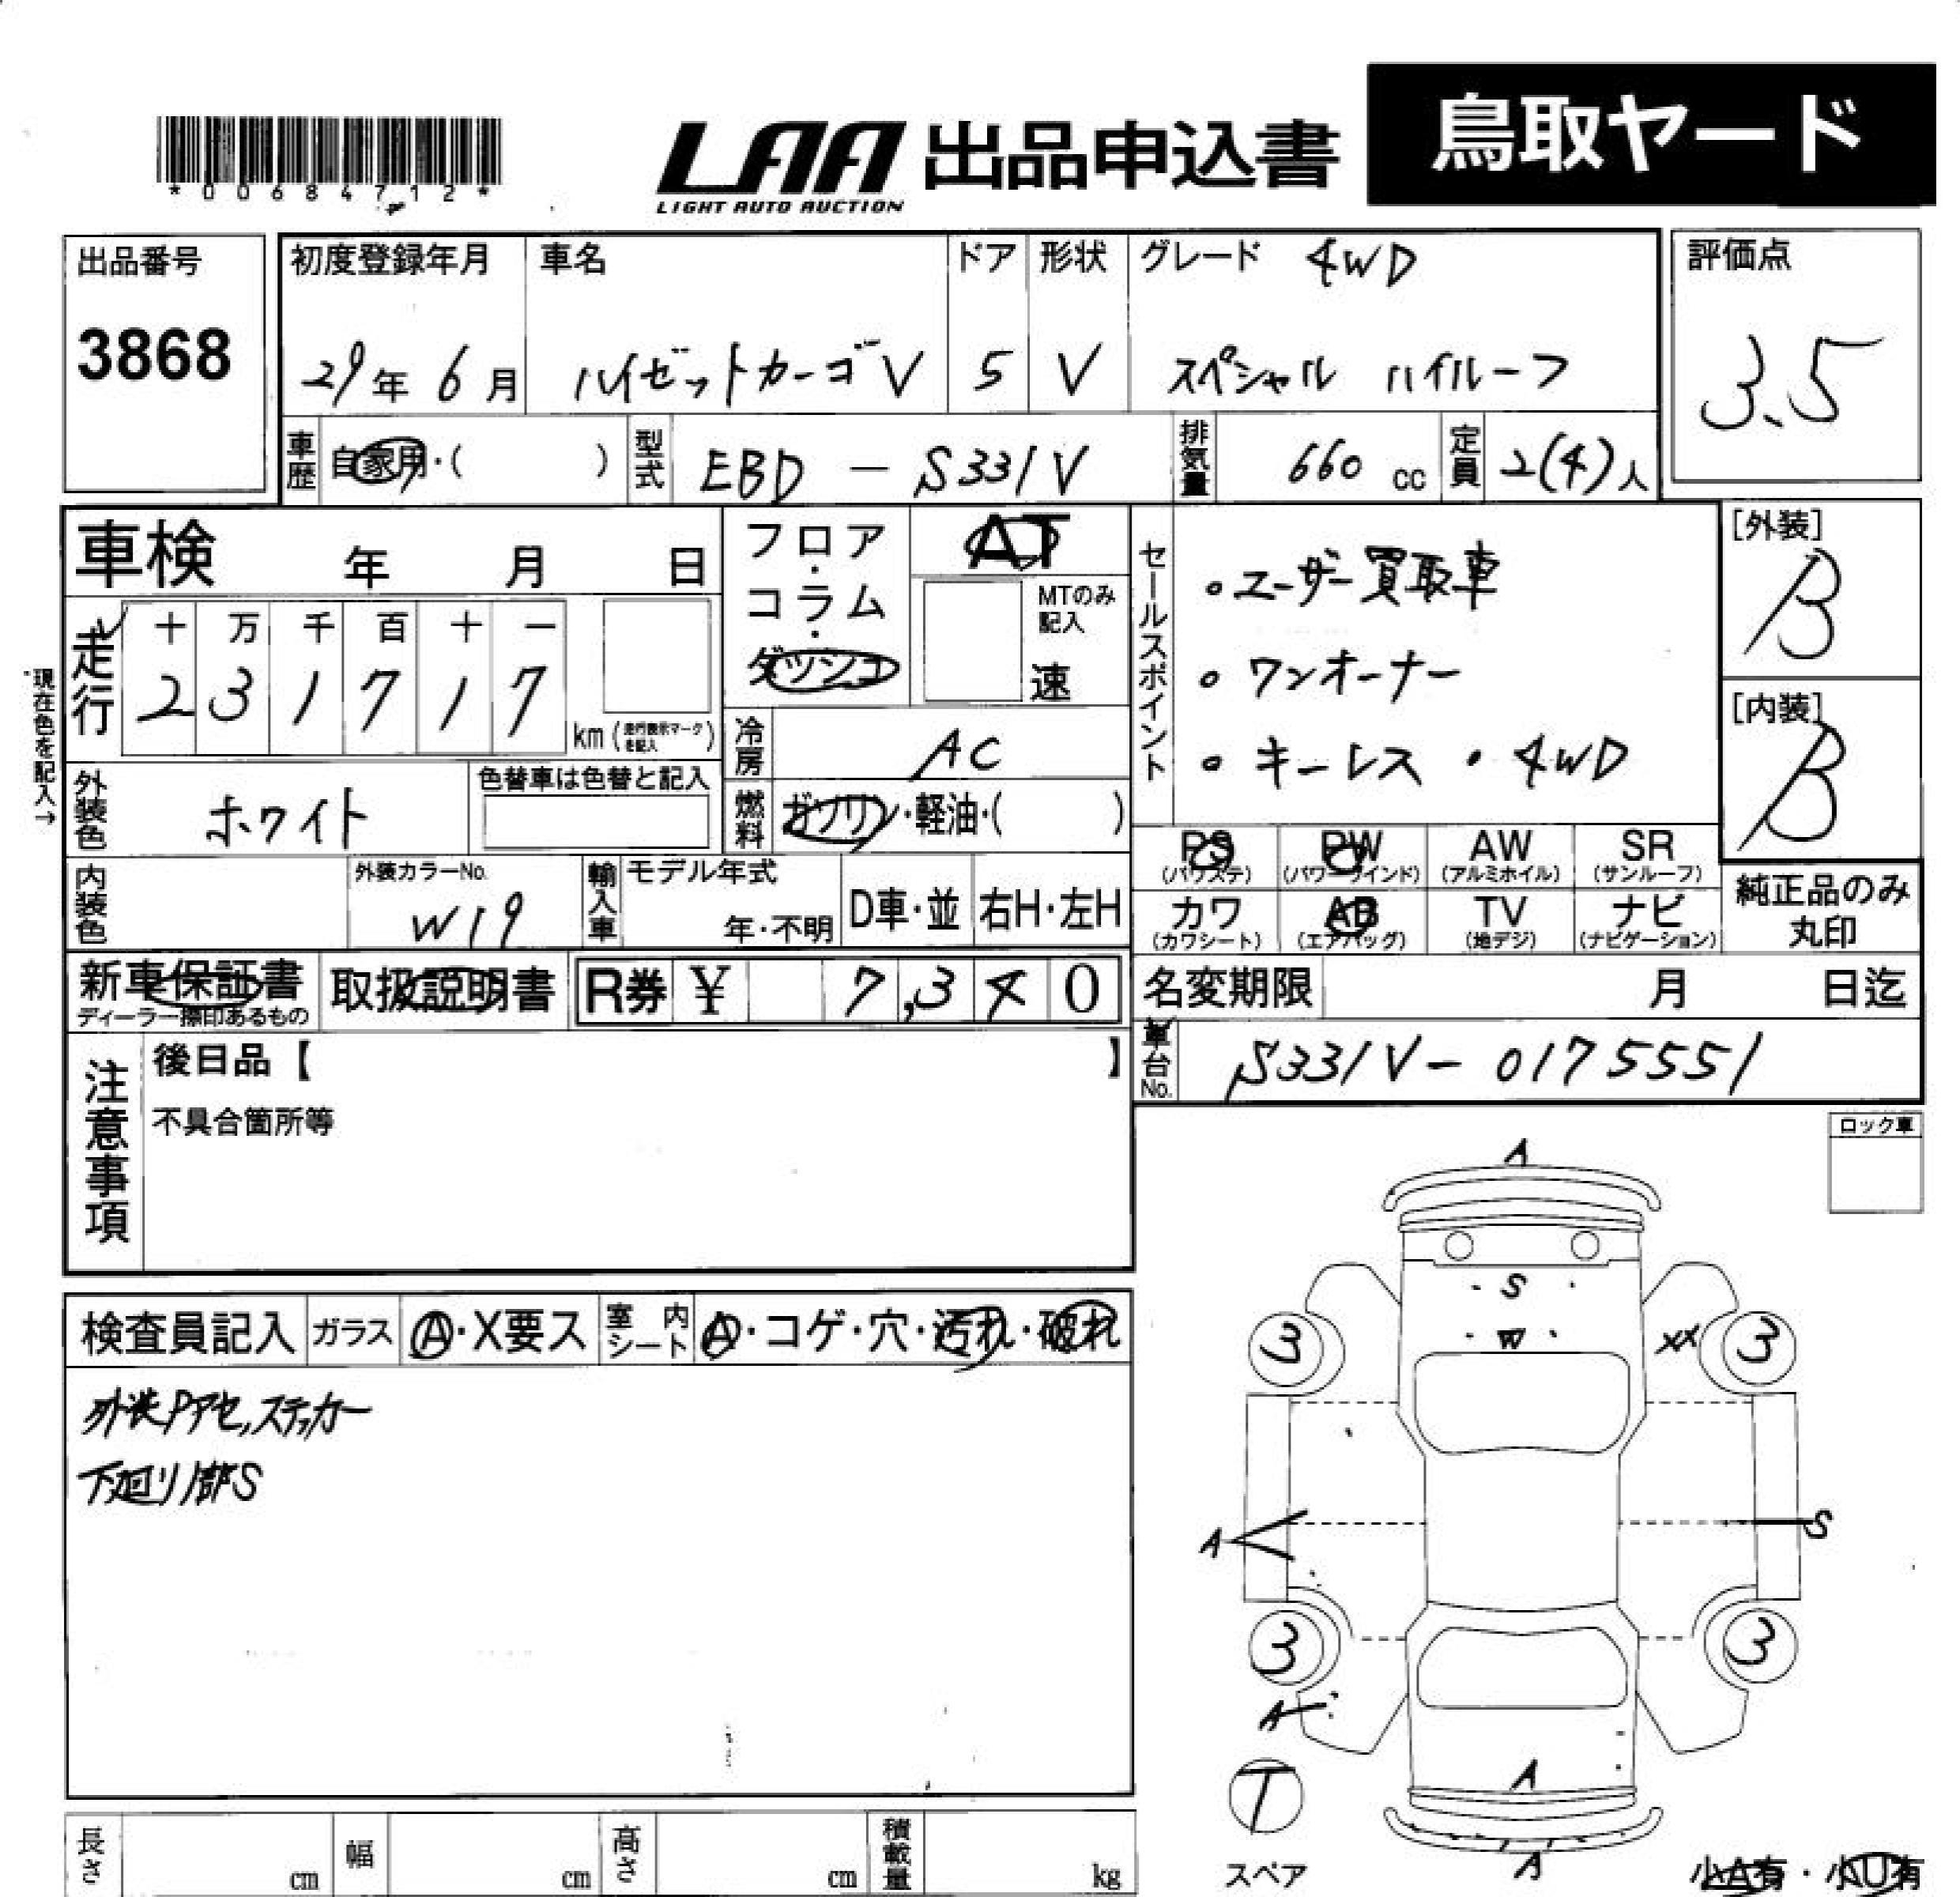 *00684712*
LAA 出品申込書 鳥取ヤード
LIGHT AUTO AUCTION
出品番号 初度登録年月 車名 ドア 形状 グレード 4WD 評価点
3868 29年 6月 ハイゼットカーゴV 5 V スペシャル ハイルーフ 3.5
車歴 自家用・( ) 型式 EBD - S331V 排気量 660 cc 定員 2(4)人
車検 年 月 日
フロア・コラム・ダッシュ
AT
MTのみ記入
速
セールスポイント
・ユーザー買取車
・ワンオーナー
・キーレス ・4WD
[外装]
B
[内装]
B
現在色を記入→
走行 十 万 千 百 十 一
2 3 1 7 1 7 km (走行表示マークを記入)
冷房 AC
外装色 ホワイト 色替車は色替と記入
燃料 ガソリン・軽油・( )
PS (パワステ) PW (パワーウインド) AW (アルミホイル) SR (サンルーフ)
カワ (カワシート) AB (エアバッグ) TV (地デジ) ナビ (ナビゲーション)
純正品のみ丸印
内装色 外装カラーNo. W19 輸入車 モデル年式 年・不明 D車・並 右H・左H
新車保証書 取扱説明書 R券 ¥ 7,340
ディーラー捺印あるもの
名変期限 月 日迄
車台No. S331V- 0175551
注意事項
後日品【 】
不具合箇所等
ロック車
検査員記入 ガラス A・X要ス 室内シート A・コゲ・穴・汚れ・破れ
外装Pアセ,ステッカー
下廻り部S
A
S
W
XX
3
3
A
S
3
3
A
T
A
A
スペア
小A有・小U有
長さ cm 幅 cm 高さ cm 積載量 kg